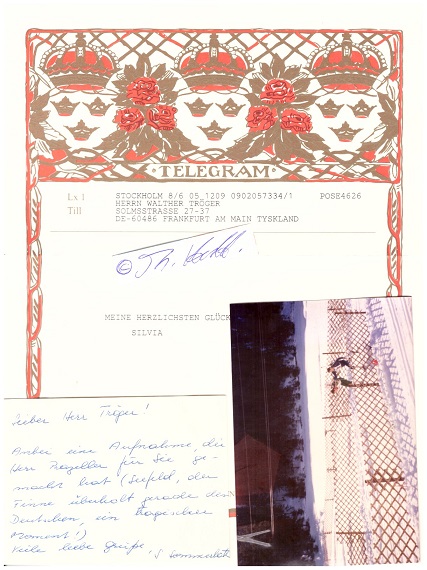 TELEGRAM
Lx 1
STOCKHOLM 8/6 05 1209 0902057334/1 POSE4626
Till
HERRN WALTHER TRÖGER
SOLMSSTRASSE 27-37
DE-60486 FRANKFURT AM MAIN TYSKLAND
©
MEINE HERZLICHSTEN GLÜCK
SILVIA
Lieber Herr Tröger!
Anbei eine Aufnahme, die
Herr für Sie ge-
macht hat (Seefeld, der
Finne überholt gerade den
Deutschen, ein tragischer
Moment!)
Viele liebe Grüße,
S Sommerlath